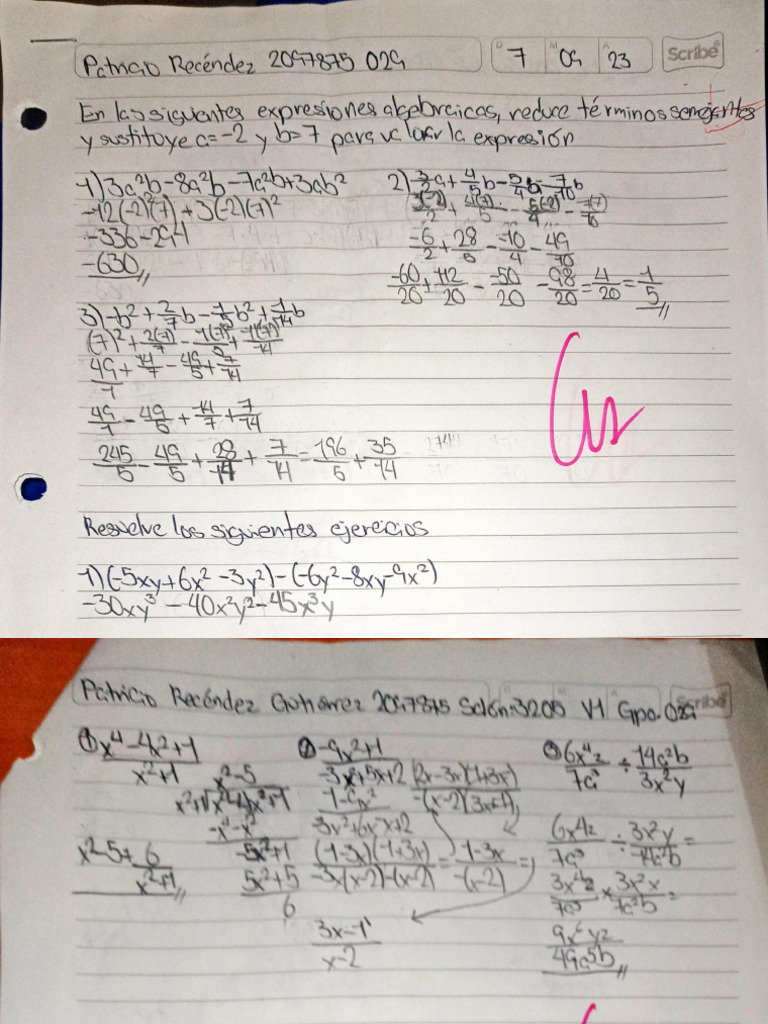 Patricio Recéndez 2097875 029
D 7 M 09 A 23 Scribe
En las siguientes expresiones algebraicas, reduce términos semejantes
y sustituye a=-2 y b=7 para valuar la expresión
1) 3a²b-8a²b-7a²b+3ab²
-12(-2)²(7)+3(-2)(7)²
-336-294
-630
2) -3/2a+4/5b-5/4a-7/10b
3(-2)/2+4(7)/5-5(-2)/4-7(7)/10
-6/2+28/5-10/4-49/10
-60/20+112/20-50/20-98/20=4/20=1/5
3) -b²+2/7b-1/5b²+1/14b
49/1+14/7-49/5+7/14
49/1-49/5+14/7+7/14
245/5-49/5+28/14+7/14=196/5+35/14
Resuelve los siguientes ejercicios
1) (-5xy+6x²-3y²)-(-6y²-8xy-9x²)
-30xy³-40x²y²-45x³y
Patricio Recéndez Gutiérrez 2097875 Salón:3205 V1 Gpo. 029
Scribe
① x⁴-4x²+1
x²+1
x²-5
-x⁴-x²
-5x²+1
5x²+5
6
x²-5+6/x²+1
② -9x²+1
-3x²+5x+2
(2x-3x)(1+3x)
-(x-2)(3x+1)
1-9x²
-3x²+6x-x+2
(1-3x)(1+3x)/-3x(x-2)-(x-2)=1-3x/-(x-2)=
3x-1
x-2
③ 6x⁴z/7a³÷14a²b/3x²y
6x⁴z/7a³÷3x²y/14a²b=
3x⁴z/7a³×3x²x/7a²b=
9x⁶yz
49a⁵b